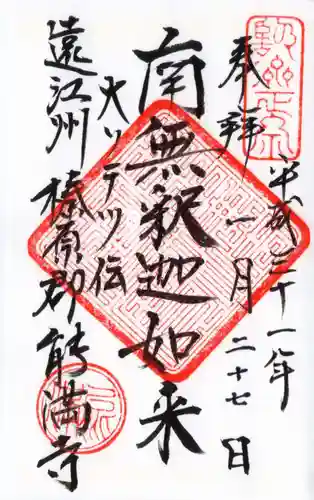 奉拝
平成三十一年
一月二十七日
南無釈迦如来
大ソテツ伝
遠江州榛原郡能満寺